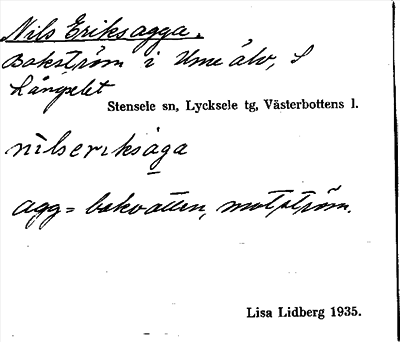 Nils Eriksagga.
Bakström i Ume älv, i
Långselet
Stensele sn, Lycksele tg, Västerbottens l.
nìlseriksaga
agg = bakvatten, motström.
Lisa Lidberg 1935.